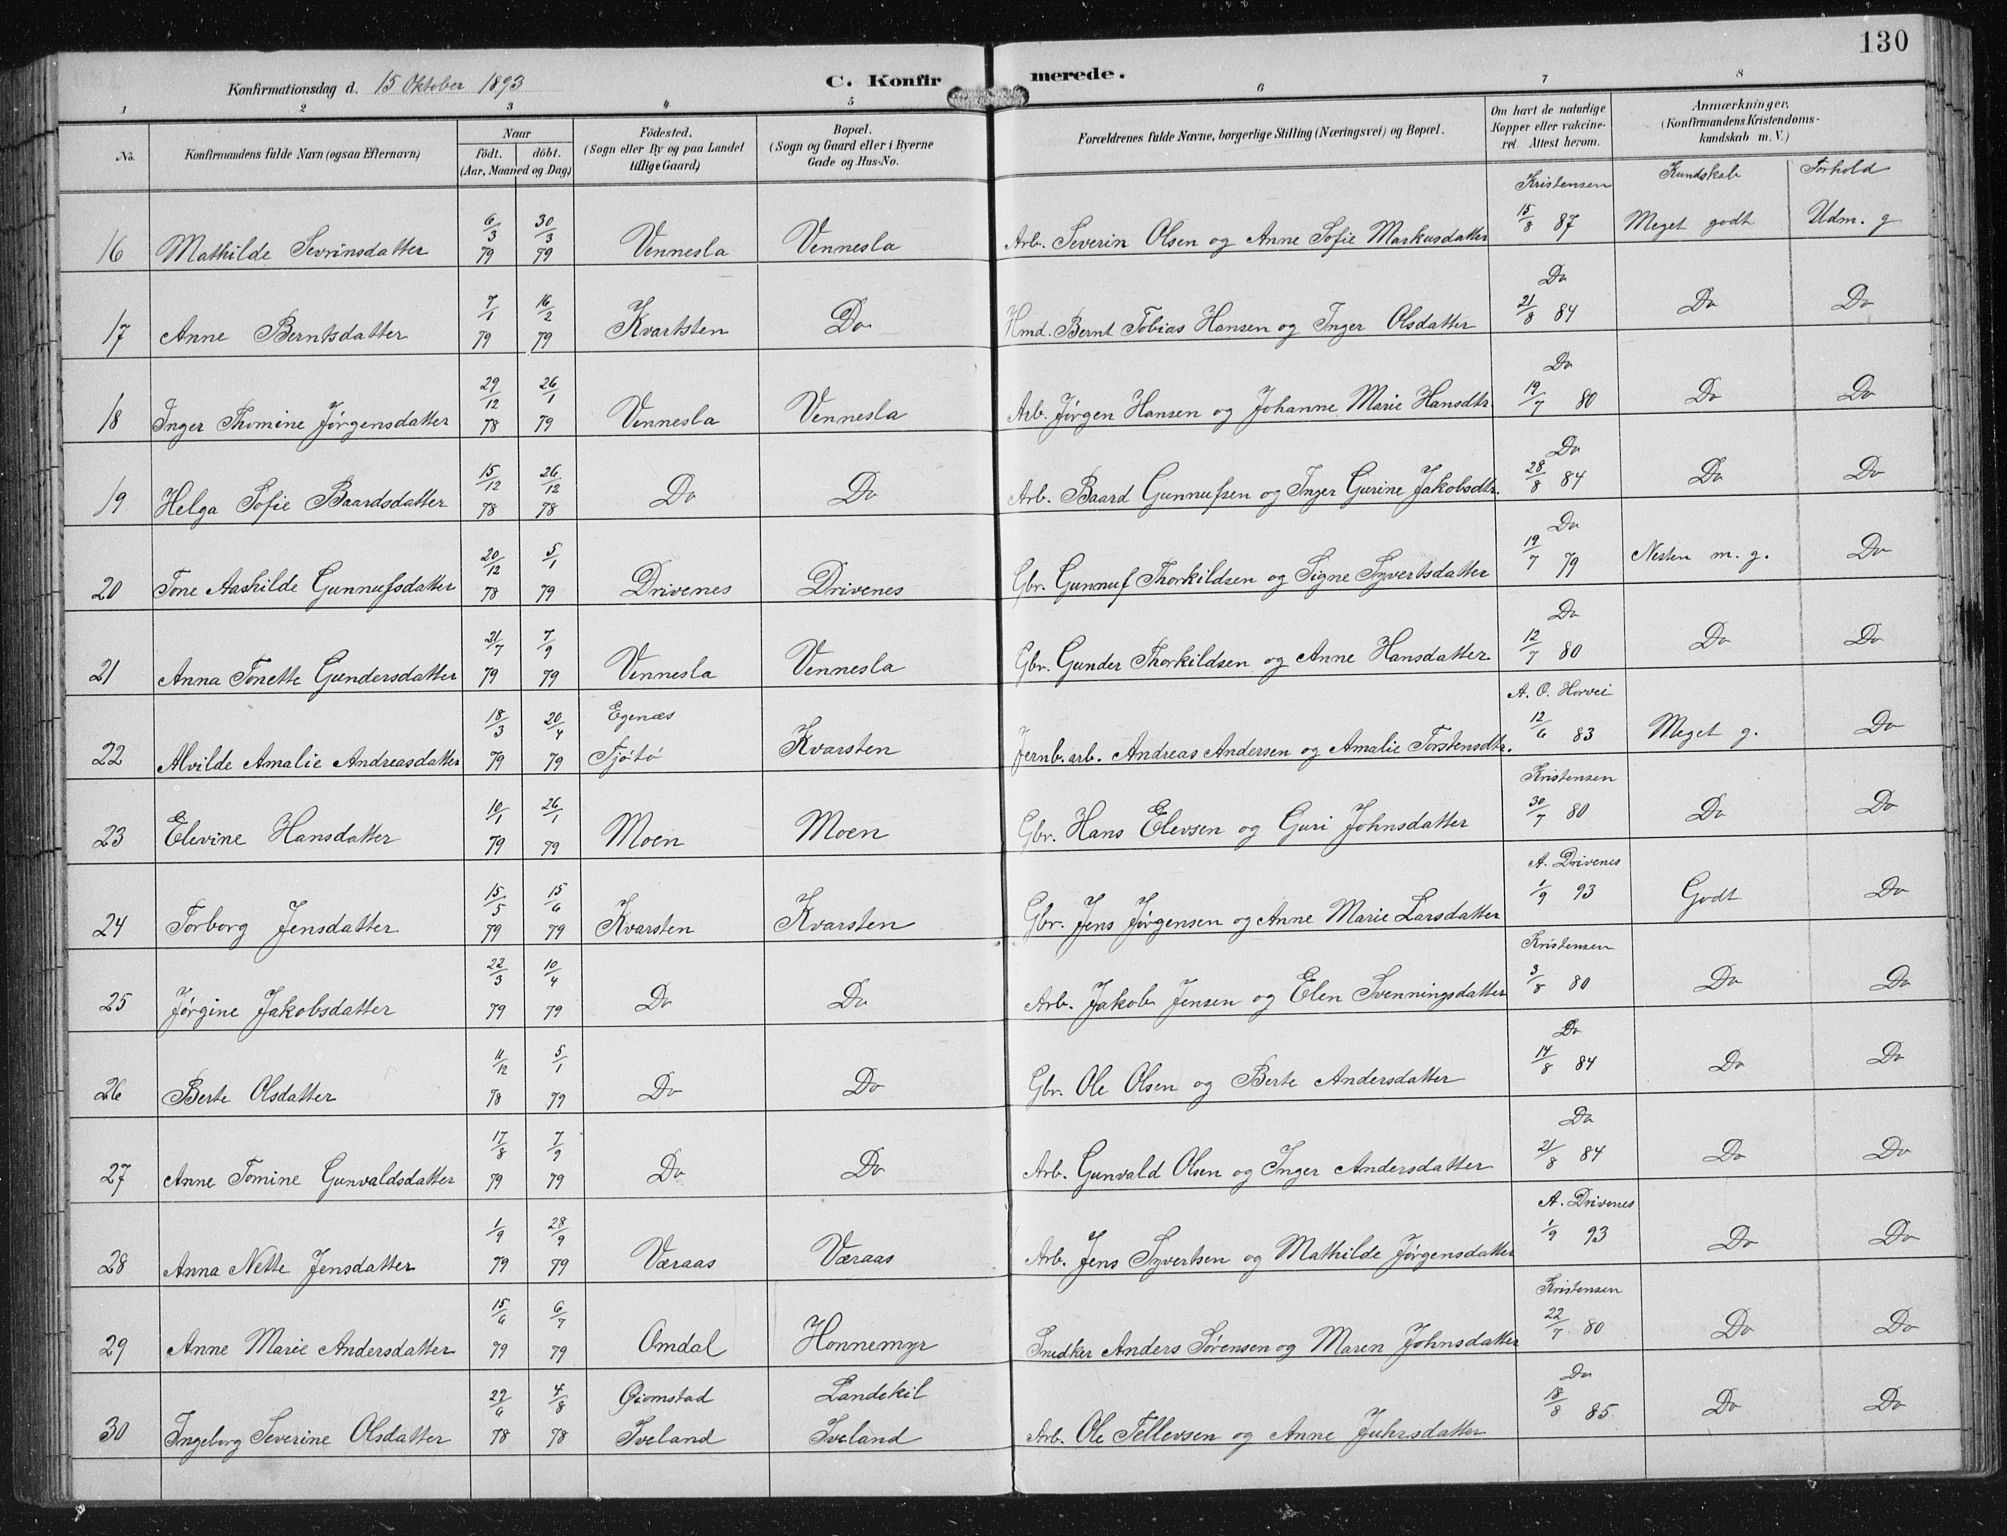 130
Konfirmationsdag d. 15 Oktober 1893 C. Konfirmerede.
1 2 3 4 5 6 7 8
No. Konfirmandens fulde Navn (ogsaa Efternavn) Naar födt. döbt. (Aar, Maaned og Dag) Födested. (Sogn eller By og paa Landet tillige Gaard) Bopæl. (Sogn og Gaard eller i Byerne Gade og Hus-No. Forældrenes fulde Navne, borgerlige Stilling (Næringsvei) og Bopæl. Om havt de naturlige Kopper eller vakcineret. Attest herom. Anmærkninger. (Konfirmandens Kristendomskundskab m. V.)
Kundskab Forhold
16 Mathilde Sevrinsdatter 6/3 79 30/3 79 Vennesla Vennesla Arb. Severin Olsen og Anne Sofie Markusdatter Kristensen 15/8 87 Meget godt Udm. g
17 Anne Berntsdatter 7/1 79 16/2 79 Kvartsten Do Hmd. Bernt Tobias Hansen og Inger Olsdatter Do 21/8 84 Do Do
18 Inger Thomine Jørgensdatter 29/12 78 26/1 79 Vennesla Vennesla Arb. Jørgen Hansen og Johanne Marie Hansdtr. Do 19/7 80 Do Do
19 Helga Sofie Baardsdatter 15/12 78 26/12 78 Do Do Arb. Baard Gunnufsen og Inger Gurine Jakobsdtr. Do 28/8 84 Do Do
20 Tone Aashilde Gunnufsdatter 20/12 78 5/1 79 Drivenes Drivenes Gbr. Gunnuf Thorkildsen og Signe Syvertsdatter Do 19/7 79 Nesten m. g. Do
21 Anna Tonette Gundersdatter 21/7 79 7/9 79 Vennesla Vennesla Gbr. Gunder Thorkildsen og Anne Hansdatter Do 12/7 80 Do Do
22 Alvilde Amalie Andreasdatter 18/3 79 20/4 79 Egenæs Tjøtø Kvarsten Jernb. arb. Andreas Andersen og Amalie Torstensdtr. A. O. Horvei 12/6 83 Meget g. Do
23 Elevine Hansdatter 10/1 79 26/1 79 Moen Moen Gbr. Hans Elevsen og Guri Johnsdatter Kristensen 30/7 80 Do Do
24 Torborg Jensdatter 15/5 79 15/6 79 Kvarsten Kvarsten Gbr. Jens Jørgensen og Anne Marie Larsdatter A. Drivenes 1/9 93 Godt Do
25 Jørgine Jakobsdatter 22/3 79 10/4 79 Do Do Arb. Jakob Jensen og Elen Svenningsdatter Kristensen 3/8 80 Do Do
26 Berte Olsdatter 11/12 78 5/1 79 Do Do Gbr. Ole Olsen og Berte Andersdatter Do 14/8 84 Do Do
27 Anne Tomine Gunvaldsdatter 17/8 79 7/9 79 Do Do Arb. Gunvald Olsen og Inger Andersdatter Do 21/8 84 Do Do
28 Anna Nette Jensdatter 1/9 79 28/9 79 Væraas Væraas Arb. Jens Syvertsen og Mathilde Jørgensdatter A. Drivenes 1/9 93 Do Do
29 Anne Marie Andersdatter 15/6 79 6/7 79 Omdal Honnemyr Snedker Anders Sørensen og Maren Johnsdatter Kristensen 22/7 80 Do Do
30 Ingeborg Severine Olsdatter 22/6 78 4/8 78 Iveland Landekil Iveland Arb. Ole Tellevsen og Anne Juhrsdatter Do 18/8 85 Do Do